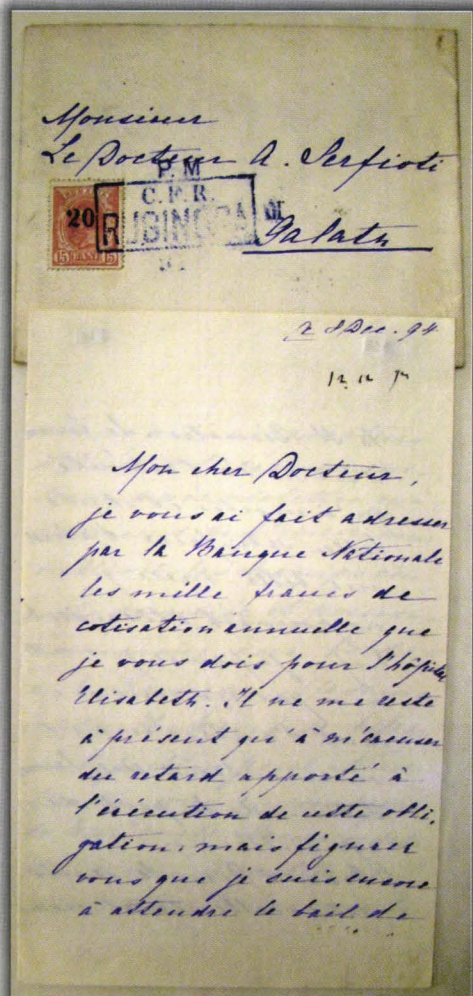 Monsieur
Le Docteur A. Serfioti
P.M
C.F.R.
20
15 BANI 15
Galatz
8 Dec. 94
Mon cher Docteur,
je vous ai fait adresser
par la Banque Nationale
les mille francs de
cotisation annuelle que
je vous dois pour l'hôpital
Elisabeth. Il ne me reste
à présent qu'à m'excuser
du retard apporté à
l'éxécution de cette obli-
gation, mais figurez
vous que je suis encore
à attendre le bail de